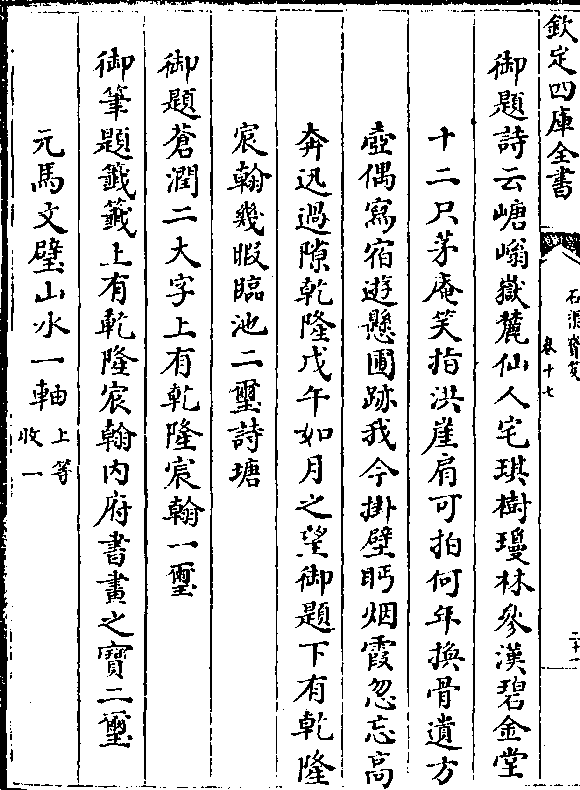 欽定四庫全書
石渠寶笈
卷十七
御題詩云嵣嵡嶽麓仙人宅琪樹瓊林參漢碧金堂
十二只茅庵笑指洪崖肩可拍何年換骨遺方
壺偶寫宿遊懸圃跡我今掛壁眄烟霞忽忘高
奔迅過隙乾隆戊午如月之望御題下有乾隆
宸翰幾暇臨池二璽詩塘
御題蒼潤二大字上有乾隆宸翰一璽
御筆題籤籤上有乾隆宸翰内府書畫之寶二璽
元馬文璧山水一軸上等
收一